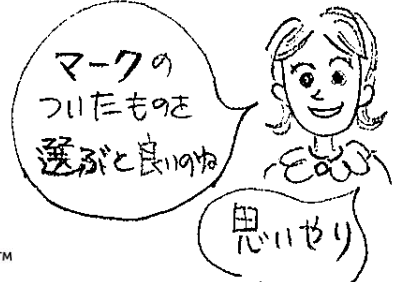 マークの
ついたものを
選ぶと良いのね
思いやり
TM